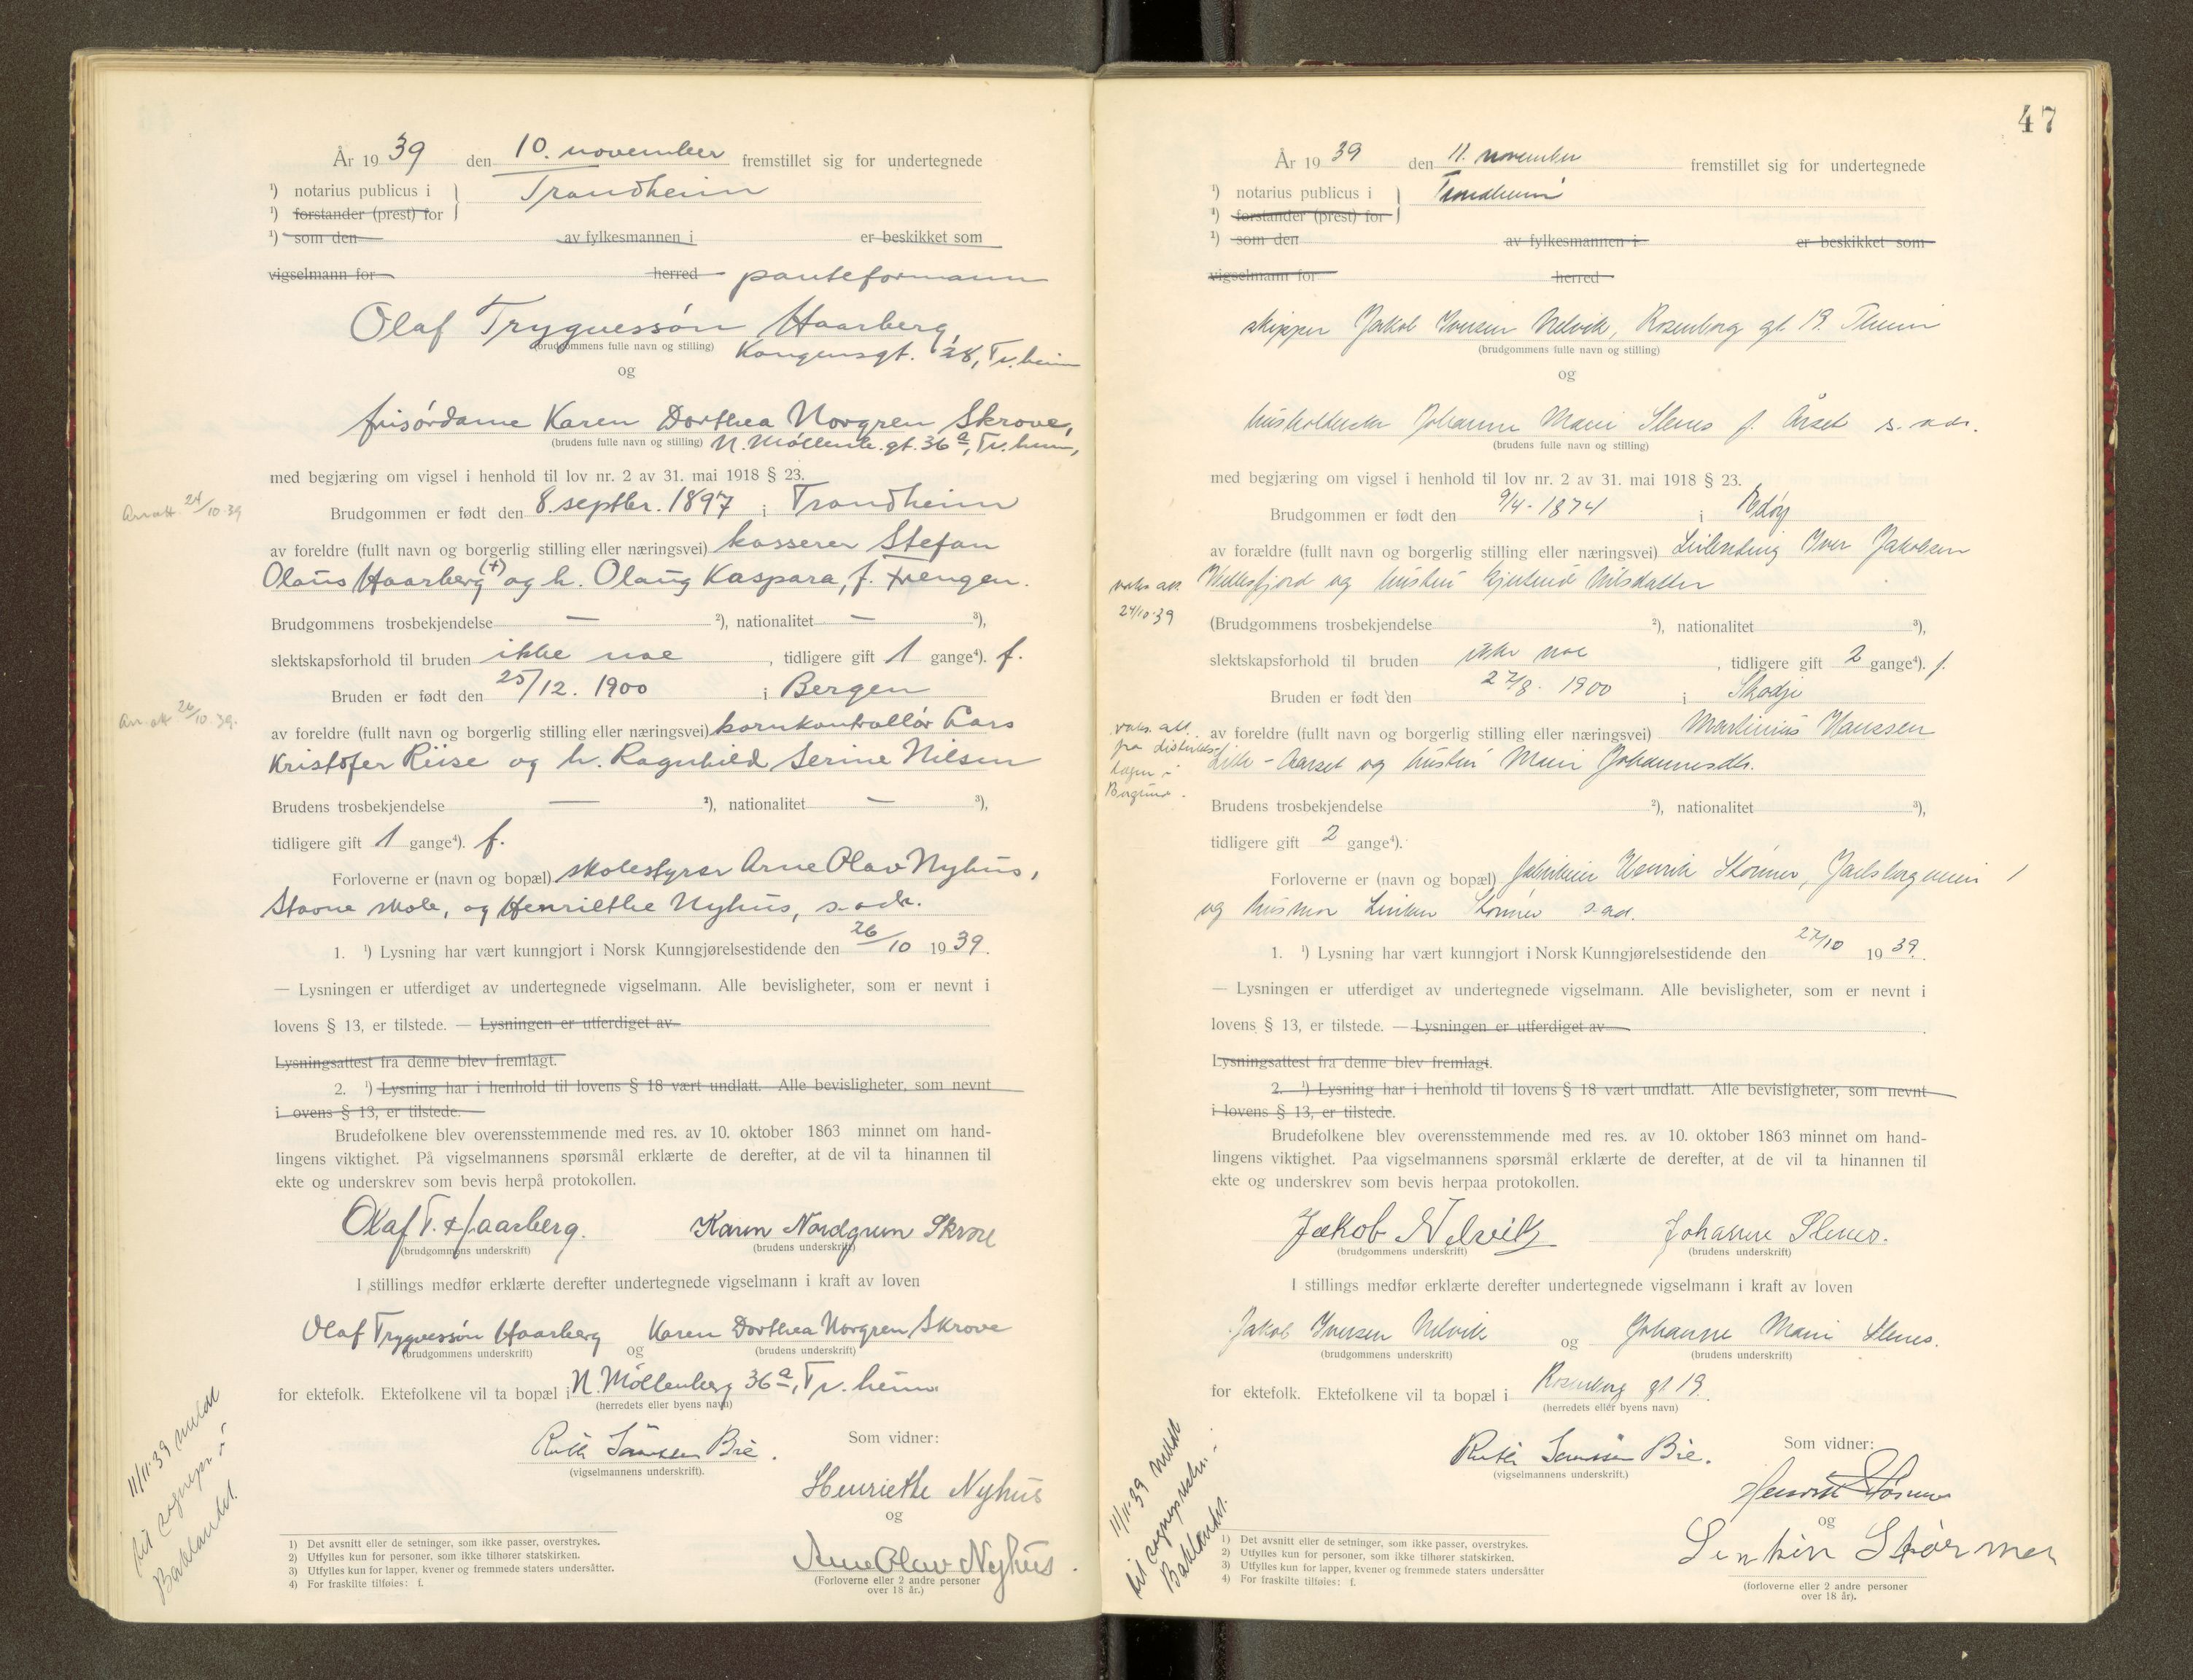 År 19 39 den 10. november fremstillet sig for undertegnede
¹) notarius publicus i } Trondheim
¹) forstander (prest) for
¹) som den av fylkesmannen i er beskikket som
vigselmann for herred panteformann
Olaf Tryguessön Haarberg,
(brudgommens fulle navn og stilling) Kongensgt. 28, Tr.heim
og
frisørdame Karen Dorthea Norgren Skrove,
(brudens fulle navn og stilling) N. Möllenb. gt. 36 a, Tr.heim,
med begjæring om vigsel i henhold til lov nr. 2 av 31. mai 1918 § 23.
24/10.39
Brudgommen er født den 8. septbr. 1897 i Trondheim
av foreldre (fullt navn og borgerlig stilling eller næringsvei) kasserer Stefan
Olaus Haarberg (+) og h. Olaug Kaspara, f. Trengen.
Brudgommens trosbekjendelse — ²), nationalitet — ³),
slektskapsforhold til bruden ikke noe , tidligere gift 1 gange⁴). f.
Bruden er født den 25/12. 1900 i Bergen
26/10.39.
av foreldre (fullt navn og borgerlig stilling eller næringsvei) kornkontrollør Lars
Kristofer Riise og h. Ragnhild Serine Nilsen
Brudens trosbekjendelse — ²), nationalitet — ³),
tidligere gift 1 gange⁴). f.
Forloverne er (navn og bopæl) skolestyrer Arne Olav Nyhus,
Stavne skole, og Henriette Nyhus, s. adr.
1. ¹) Lysning har vært kunngjort i Norsk Kunngjørelsestidende den 26/10 19 39.
— Lysningen er utferdiget av undertegnede vigselmann. Alle bevisligheter, som er nevnt i
lovens § 13, er tilstede. — Lysningen er utferdiget av
Lysningsattest fra denne blev fremlagt.
2. ¹) Lysning har i henhold til lovens § 18 vært undlatt. Alle bevisligheter, som nevnt
i ovens § 13, er tilstede.
Brudefolkene blev overensstemmende med res. av 10. oktober 1863 minnet om hand-
lingens viktighet. På vigselmannens spørsmål erklærte de derefter, at de vil ta hinannen til
ekte og underskrev som bevis herpå protokollen.
Olaf T. Haarberg. Karen Nordgren Skrove
(brudgommens underskrift) (brudens underskrift)
I stillings medfør erklærte derefter undertegnede vigselmann i kraft av loven
Olaf Tryguessön Haarberg og Karen Dorthea Norgren Skrove
(brudgommens underskrift) (brudens underskrift)
for ektefolk. Ektefolkene vil ta bopæl i N. Möllenberg 36 a, Tr.heim
(herredets eller byens navn)
Ruth Sannes Bie.
(vigselmannens underskrift).
Som vidner:
Henriette Nyhus
og
Arne Olav Nyhus.
(Forloverne eller 2 andre personer
over 18 år.)
11/11.39 meldt
til sognepr. i
Baklandet.
1) Det avsnitt eller de setninger, som ikke passer, overstrykes.
2) Utfylles kun for personer, som ikke tilhører statskirken.
3) Utfylles kun for lapper, kvener og fremmede staters undersåtter.
4) For fraskilte tilføies: f.
47
År 19 39 den 11. november fremstillet sig for undertegnede
¹) notarius publicus i } Trondheim
¹) forstander (prest) for
¹) som den av fylkesmannen i er beskikket som
vigselmann for herred
skipper Jakob Iversen Nelvik, Rosenborg gt. 19. Theim
(brudgommens fulle navn og stilling)
og
husholderske Johanne Marie Slenes f. Årset s. adr.
(brudens fulle navn og stilling)
med begjæring om vigsel i henhold til lov nr. 2 av 31. mai 1918 § 23.
Brudgommen er født den 9/4-1874 i Edøy
av forældre (fullt navn og borgerlig stilling eller næringsvei) Leilending Iver Jakobsen
og hustru Nilsdatter
vaks. att.
24/10-39
(Brudgommens trosbekjendelse ²), nationalitet ³),
slektskapsforhold til bruden ikke noe , tidligere gift 2 gange⁴). f.
Bruden er født den 27/8. 1900 i Skodje
vaks. att.
Borgund.
av foreldre (fullt navn og borgerlig stilling eller næringsvei) Martinius Hanssen
Lille-Aarset og hustru Marie Johannesdtr.
Brudens trosbekjendelse ²), nationalitet ³),
tidligere gift 2 gange⁴).
Forloverne er (navn og bopæl) Henrik Størmer, Jarlsborgveien 1
og husmor Linken Størmer s. ad.
1. ¹) Lysning har vært kunngjort i Norsk Kunngjørelsestidende den 27/10 19 39.
— Lysningen er utferdiget av undertegnede vigselmann. Alle bevisligheter, som er nevnt i
lovens § 13, er tilstede. — Lysningen er utferdiget av
Lysningsattest fra denne blev fremlagt.
2. ¹) Lysning har i henhold til lovens § 18 vært undlatt. Alle bevisligheter, som nevnt
i lovens § 13, er tilstede.
Brudefolkene blev overensstemmende med res. av 10. oktober 1863 minnet om hand-
lingens viktighet. Paa vigselmannens spørsmål erklærte de derefter, at de vil ta hinannen til
ekte og underskrev som bevis herpaa protokollen.
Jakob Nelvik Johanne Slenes.
(brudgommens underskrift) (brudens underskrift)
I stillings medfør erklærte derefter undertegnede vigselmann i kraft av loven
Jakob Iversen Nelvik og Johanne Marie Slenes.
(brudgommens underskrift) (brudens underskrift)
for ektefolk. Ektefolkene vil ta bopæl i Rosenborg gt 19.
(herredets eller byens navn)
Ruth Sannes Bie.
(vigselmannens underskrift.)
Som vidner:
Henrik Størmer
og
Linken Størmer
(forloverne eller 2 andre personer
over 18 år).
11/11-39 meldt
til sogneprsten i
Baklandet.
1) Det avsnitt eller de setninger, som ikke passer, overstrykes.
2) Utfylles kun for personer, som ikke tilhører statskirken.
3) Utfylles kun for lapper, kvener og fremmede staters undersåtter
4) For fraskilte tilføies: f.